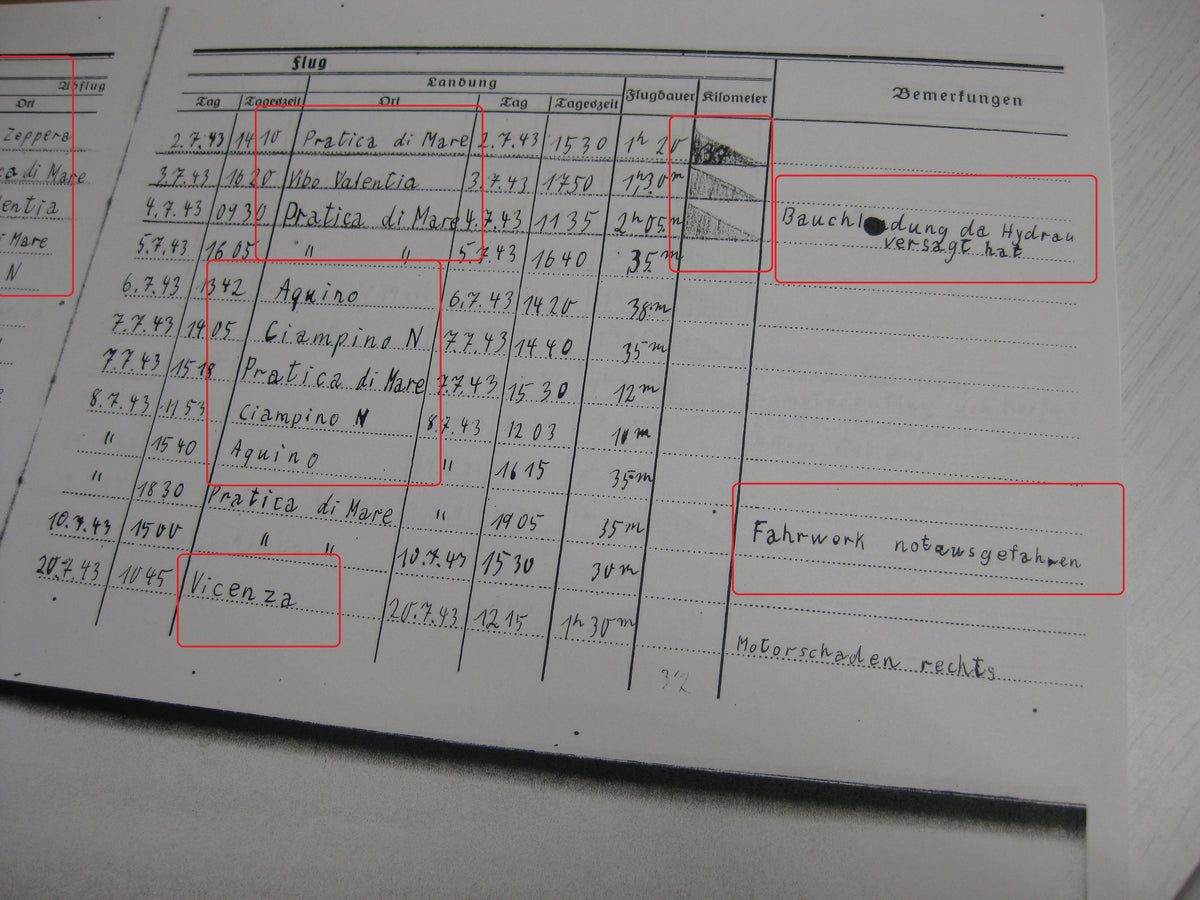 Flug
Abflug
Landung
Flugdauer
Kilometer
Bemerkungen
Ort
Tag
Tageszeit
Ort
Tag
Tageszeit
Zeppera 2.7.43 14 10 Pratica di Mare 2.7.43 15 30 1h 20
ca di Mare 3.7.43 16 20 Vibo Valentia 3.7.43 17 50 1h 30m
entia 4.7.43 09 30 Pratica di Mare 4.7.43 11 35 2h 05m Bauchlandung da Hydrau
versagt hat
i Mare 5.7.43 16 05 " " 5.7.43 16 40 35m
N 6.7.43 13 42 Aquino 6.7.43 14 20 38m
7.7.43 14 05 Ciampino N 7.7.43 14 40 35m
7.7.43 15 18 Pratica di Mare 7.7.43 15 30 12m
8.7.43 11 53 Ciampino N 8.7.43 12 03 10m
" 15 40 Aquino " 16 15 35m
" 18 30 Pratica di Mare " 19 05 35m Fahrwerk notausgefahren
10.7.43 15 00 " " 10.7.43 15 30 30m
20.7.43 10 45 Vicenza 20.7.43 12 15 1h 30m Motorschaden rechts
37